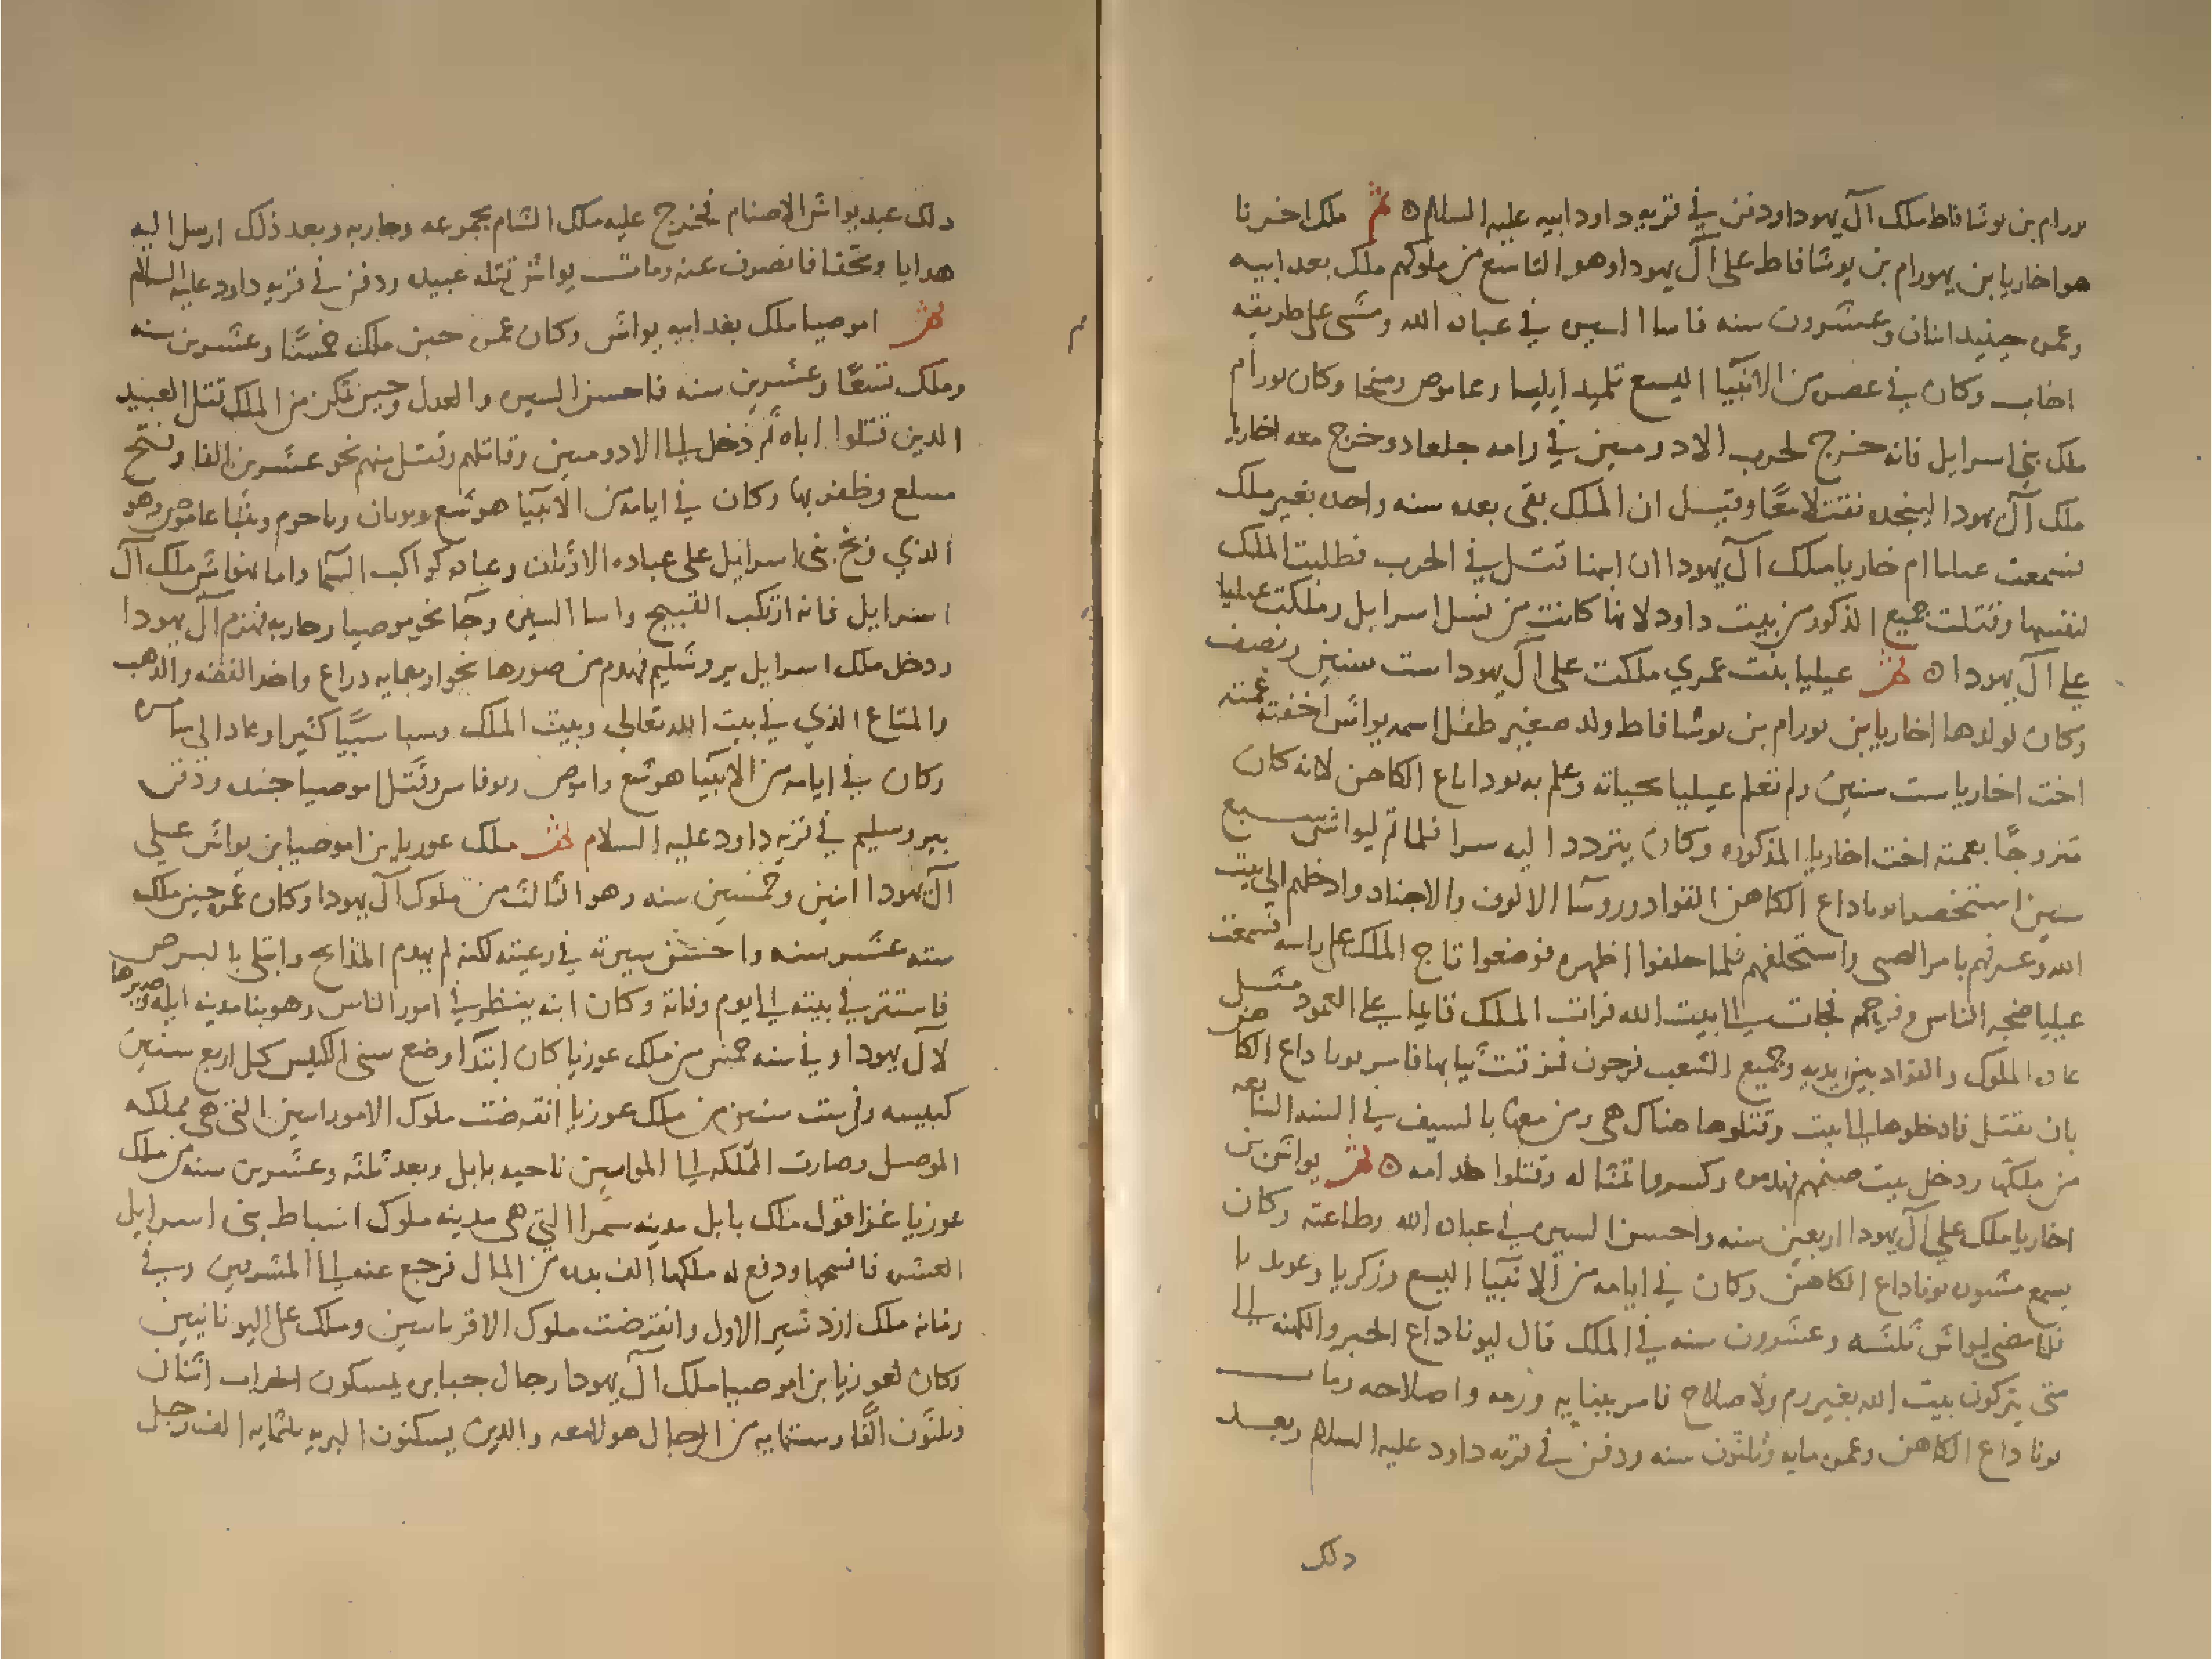 يورام بن يوشافاط ملك آل يهودا ودفن في قريه داود ابيه عليه السلام ه ثم ملك اخزيا
هو اخازيا بن يهورام بن يوشافاط على آل يهودا وهو التاسع من ملوكهم ملك بعد ابيه
وعمره حينيد اثنان وعشرون سنه فاسا السيره في عباده الله ومشى على طريقه
اخاب وكان في عصره من الانبيا اليسع تلميد ايليا وعاموص ومنحا وكان يورام
ملك بني اسرايل فانه خرج لحرب الادوميين في رامه جلعاد وخرج معه اخازيا
ملك آل يهودا لينجده فقتلا معًا وقيل ان الملك بقى بعده سنه واحده بغير ملك
فسمعت عيليا ام خازيا ملك آل يهودا ان ابنها قتل في الحرب فطلبت الملك
لنفسها وقتلت جميع الذكور من بيت داود لانها كانت من نسل اسرايل وملكت عيليا
على آل يهودا ه ثم عيليا بنت عمري ملكت على آل يهودا ست سنين ونصف
وكان لولدها اخازيا بن يورام بن يوشافاط ولد صغير طفل اسمه يواش اخفته عمته
اخت اخازيا ست سنين ولم تعلم عيليا بحياته وعلم به يوداياع الكاهن لانه كان
متزوجًا بعمته اخت اخازيا المذكوره وكان يتردد اليه سرا فلما تم ليواش سبع
سنين استحضر يوياداع الكاهن القواد وروسآ الالوف والاجناد وادخلهم الى بيت
الله وعرفهم بامر الصبي واستحلفهم فلما حلفوا اظهره فوضعوا تاج الملك على راسه فسمعت
عيليا ضجه الناس وفرحهم فجات الى بيت الله فرات الملك قايما على العمود مثل
عاده الملوك والقواد بين يديه وجميع الشعب فرحون فمزقت ثيابها فامر يوياداع الكاهن
بان تقتل فادخلوها الى البيت وقتلوها هناك هي ومن معها بالسيف في السنه السابعه
من ملكها ودخل بيت صنمهم فهدموه وكسروا تمثاله وقتلوا خدامه ه ثم يواش بن
اخازيا ملك على آل يهودا اربعين سنه واحسن السيره في عباده الله وطاعته وكان
يسمع مشوره يوناداع الكاهن وكان في ايامه من الانبيا اليسع وزكريا وعوبديا
فلما مضى ليواش ثلثه وعشرون سنه في الملك قال ليوناداع الحبر والكهنه الى
متى يتركون بيت الله بغير رم ولا صلاح فامر ببنايه ورمه واصلاحه ومات
يوناداع الكاهن وعمره مايه وثلثون سنه ودفن في قريه داود عليه السلام وبعد
دلك
دلك عبد يواش الاصنام فخرج عليه ملك الشام بجموعه وحاربه وبعد ذلك ارسل اليه
هدايا وتحفا فانصرف عنه ومات يواش قتله عبيده ودفن في قريه داود عليه السلام
ثم اموصيا ملك بعد ابيه يواش وكان عمره حين ملك خمسًا وعشرين سنه
وملك تسعًا وعشرين سنه فاحسن السيره والعدل وحين تمكن من الملك قتل العبيد
الدين قتلوا اباه ثم دخل الى الادوميين وقاتلهم وقتل منهم نحو عشرين الفا وفتح
مسلع وظفر بها وكان في ايامه من الانبيا هوشع ويويان وناحوم ونبيا عاموص وهو
الذي وبخ بني اسرايل على عباده الاوثان وعباده كواكب السما واما يهواش ملك آل
اسرايل فانه ارتكب القبيح واسا السيره وجآ نحو موصيا وحاربه فهزم آل يهودا
ودخل ملك اسرايل يروشليم فهدم من صورها نحو اربعمايه دراع واخد الفضه والدهب
والمتاع الذي في بيت الله تعالى وبيت الملك وسبا سبيًا كثيرا وعاد الى سامره
وكان في ايامه من الانبيا هوشع واموص ويوناس وقتل اموصيا جنده ودفن
بيروسليم في قريه داود عليه السلام ثم ملك عوزيا بن اموصيا بن يواش على
آل يهودا اثنين وخمسين سنه وهو الثالث من ملوك آل يهودا وكان عمره حين ملك
سته عشر سنه واحسن سيرته في رعيته لكنه لم يهدم المذابح وابتلى بالبرص
فاستتر في بيته الى يوم وفاته وكان ابنه ينظر في امور الناس وهو بنا مدينه ايله وصيرها
لآل يهودا وفي سنه خمس من ملك عوزيا كان ابتدا وضع سني الكبيس كل اربع سنين
كبيسه وفي ست سنين من ملك عوزيا انقرضت ملوك الاموراسين التي هي مملكه
الموصل وصارت المملكه الى المواسين ناحيه بابل وبعد ثلثه وعشرين سنه من ملك
عوزيا غزا فول ملك بابل مدينه سمرا التي هي مدينه ملوك اسباط بني اسرايل
العشره فافتتحها ودفع له ملكها الف بدره من المال فرجع عنه الى المشرقين وفي
زمانه ملك ازدشير الاول وانقرضت ملوك الاقرباسين وملك على اليونانيين
وكان لعوزيا بن اموصيا ملك آل يهودا رجال جبابره يمسكون الحراب اثنان
وثلثون الفًا وستمايه من الرجال هولا معه والدين يسكنون البريه ثلثمايه الف رجل